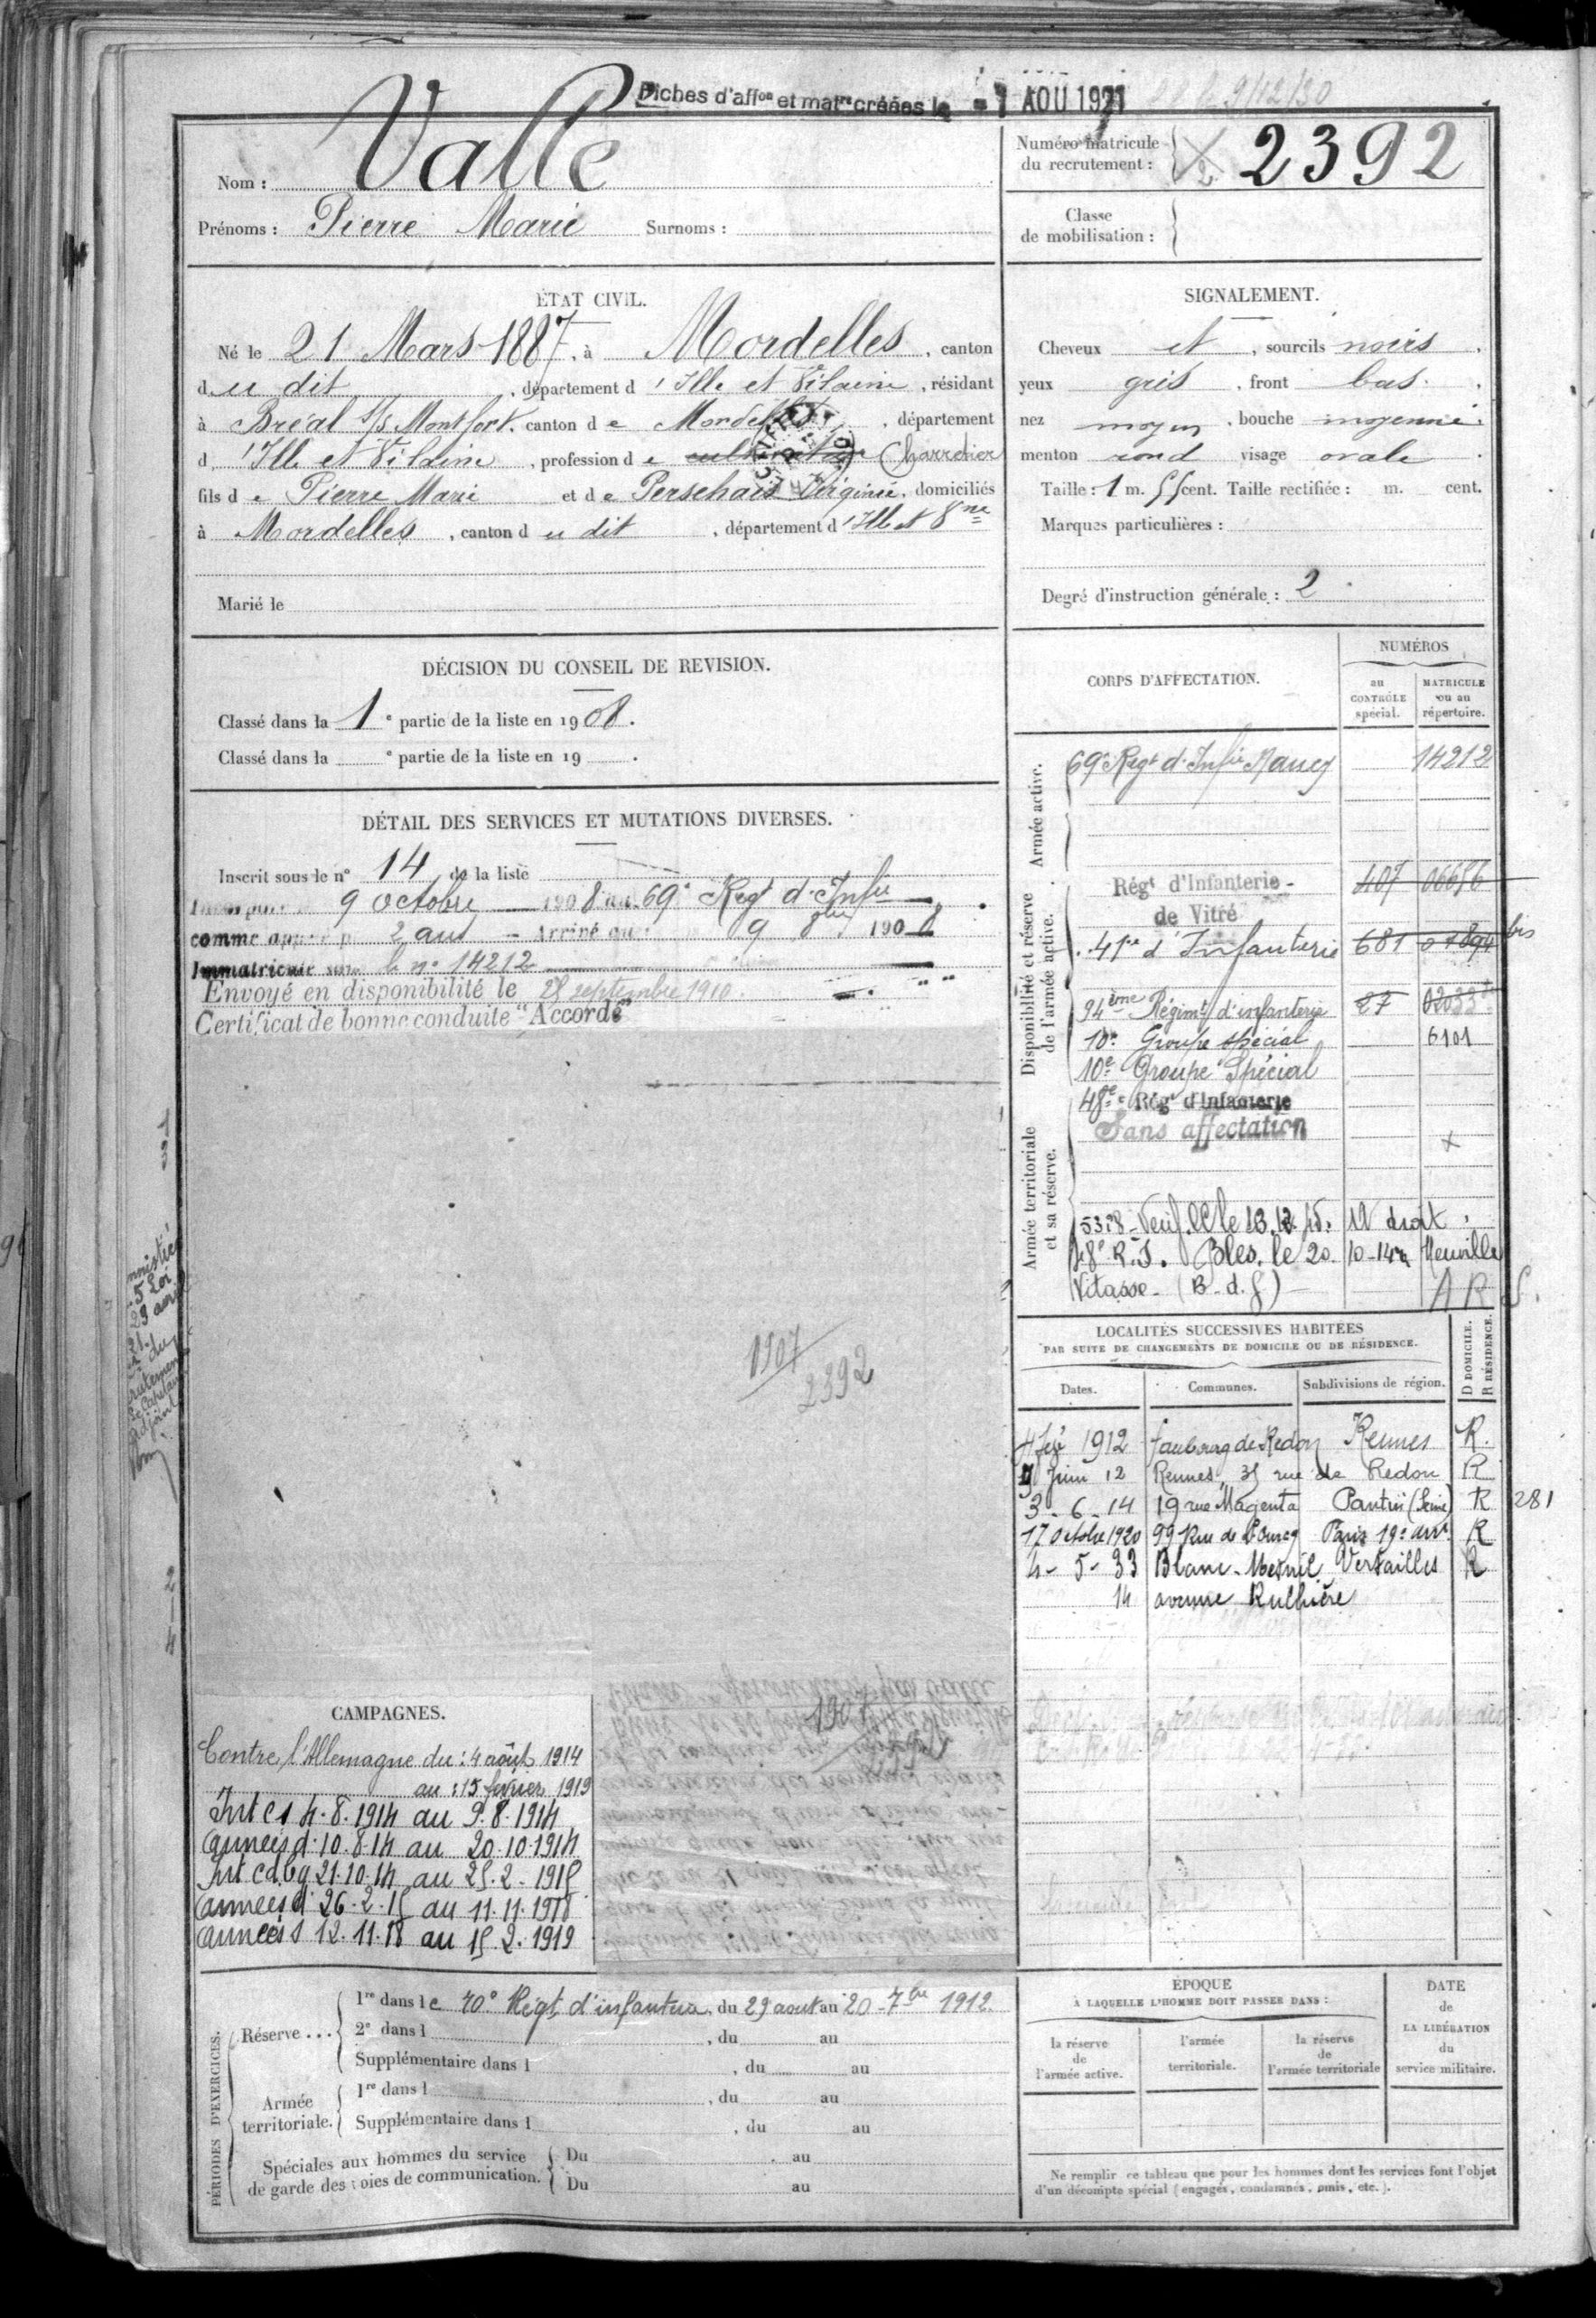 Fiches d'affon et matre créées le - 7 AOU 1931
9/12/30
Nom : Vallé
Prénoms : Pierre Marie Surnoms :
Numéro matricule
du recrutement : 2392
Classe
de mobilisation :
ÉTAT CIVIL.
Né le 21 Mars 1887, à Mordelles, canton
du dit, département d'Ille et Vilaine, résidant
à Bréal s/s Montfort, canton de Mordelles, département
d'Ille et Vilaine, profession de cultivateur Charretier
fils de Pierre Marie et de Persehais Virginie, domiciliés
à Mordelles, canton du dit, département d'Ille et Vne
Marié le
SIGNALEMENT.
Cheveux et, sourcils noirs,
yeux gris, front bas,
nez moyen, bouche moyenne,
menton rond visage ovale.
Taille : 1 m. 55 cent. Taille rectifiée : m. cent.
Marques particulières :
Degré d'instruction générale : 2
DÉCISION DU CONSEIL DE REVISION.
Classé dans la 1e partie de la liste en 1908.
Classé dans la e partie de la liste en 19 .
DÉTAIL DES SERVICES ET MUTATIONS DIVERSES.
Inscrit sous le n° 14 de la liste
9 octobre 1908 au 69e Regt d'Infie
comme appelé p 2 ans - Arrivé au 9 8bre 1908
Immatriculé sous le n° 14212
Envoyé en disponibilité le 25 septembre 1910.
Certificat de bonne conduite "Accordé"
1907
2392
CORPS D'AFFECTATION.
NUMÉROS
au
CONTRÔLE
spécial.
MATRICULE
ou au
répertoire.
Armée active.
69e Regt d'Infie Nancy 14212
Disponibilité et réserve
de l'armée active.
Régt d'Infanterie -
de Vitré 407 06656
41e d'Infanterie 681 01894 bis
94ème Régimt d'infanterie 27 02033
10e Groupe spécial 6101
10e Groupe Spécial
48e Régt d'Infanterie
Sans affectation
Armée territoriale
et sa réserve.
48e R.I. Bles. le 20-10-14 à Neuville
Vitasse - (B.d.g)
A R S.
LOCALITÉS SUCCESSIVES HABITÉES
PAR SUITE DE CHANGEMENTS DE DOMICILE OU DE RÉSIDENCE.
Dates. Communes. Subdivisions de région. D DOMICILE. R RÉSIDENCE.
4 fevr 1912 faubourg de Redon Rennes R.
9 Juin 12 Rennes, 35 rue de Redon R
3-6-14 19 rue Magenta Pantin (Seine) R 281
17 octobre 1920 99 Rue de l'Ourcq Paris 19e arrt R
4-5-33 Blanc-Mesnil Versailles R
14 avenue Rulhière
CAMPAGNES.
Contre l'Allemagne du : 4 août 1914
au : 15 février 1919
Int CS 4.8.1914 au 9.8.1914
armées d. 10.8.14 au 20.10.1914
Int cd bg 21.10.14 au 25.2.1915
armées d 26.2.15 au 11.11.1918
armées s 12.11.18 au 15.2.1919
PÉRIODES D'EXERCICES.
Réserve ...
1re dans le 70e Régt d'infanterie, du 29 aout au 20 7bre 1912
2e dans l , du au
Supplémentaire dans l , du au
Armée
territoriale.
1re dans l , du au
Supplémentaire dans l , du au
Spéciales aux hommes du service
de garde des voies de communication.
Du au
Du au
ÉPOQUE
À LAQUELLE L'HOMME DOIT PASSER DANS :
la réserve
de
l'armée active.
l'armée
territoriale.
la réserve
de
l'armée territoriale
DATE
de
LA LIBÉRATION
du
service militaire.
Ne remplir ce tableau que pour les hommes dont les services font l'objet
d'un décompte spécial (engagés, condamnés, omis, etc.).